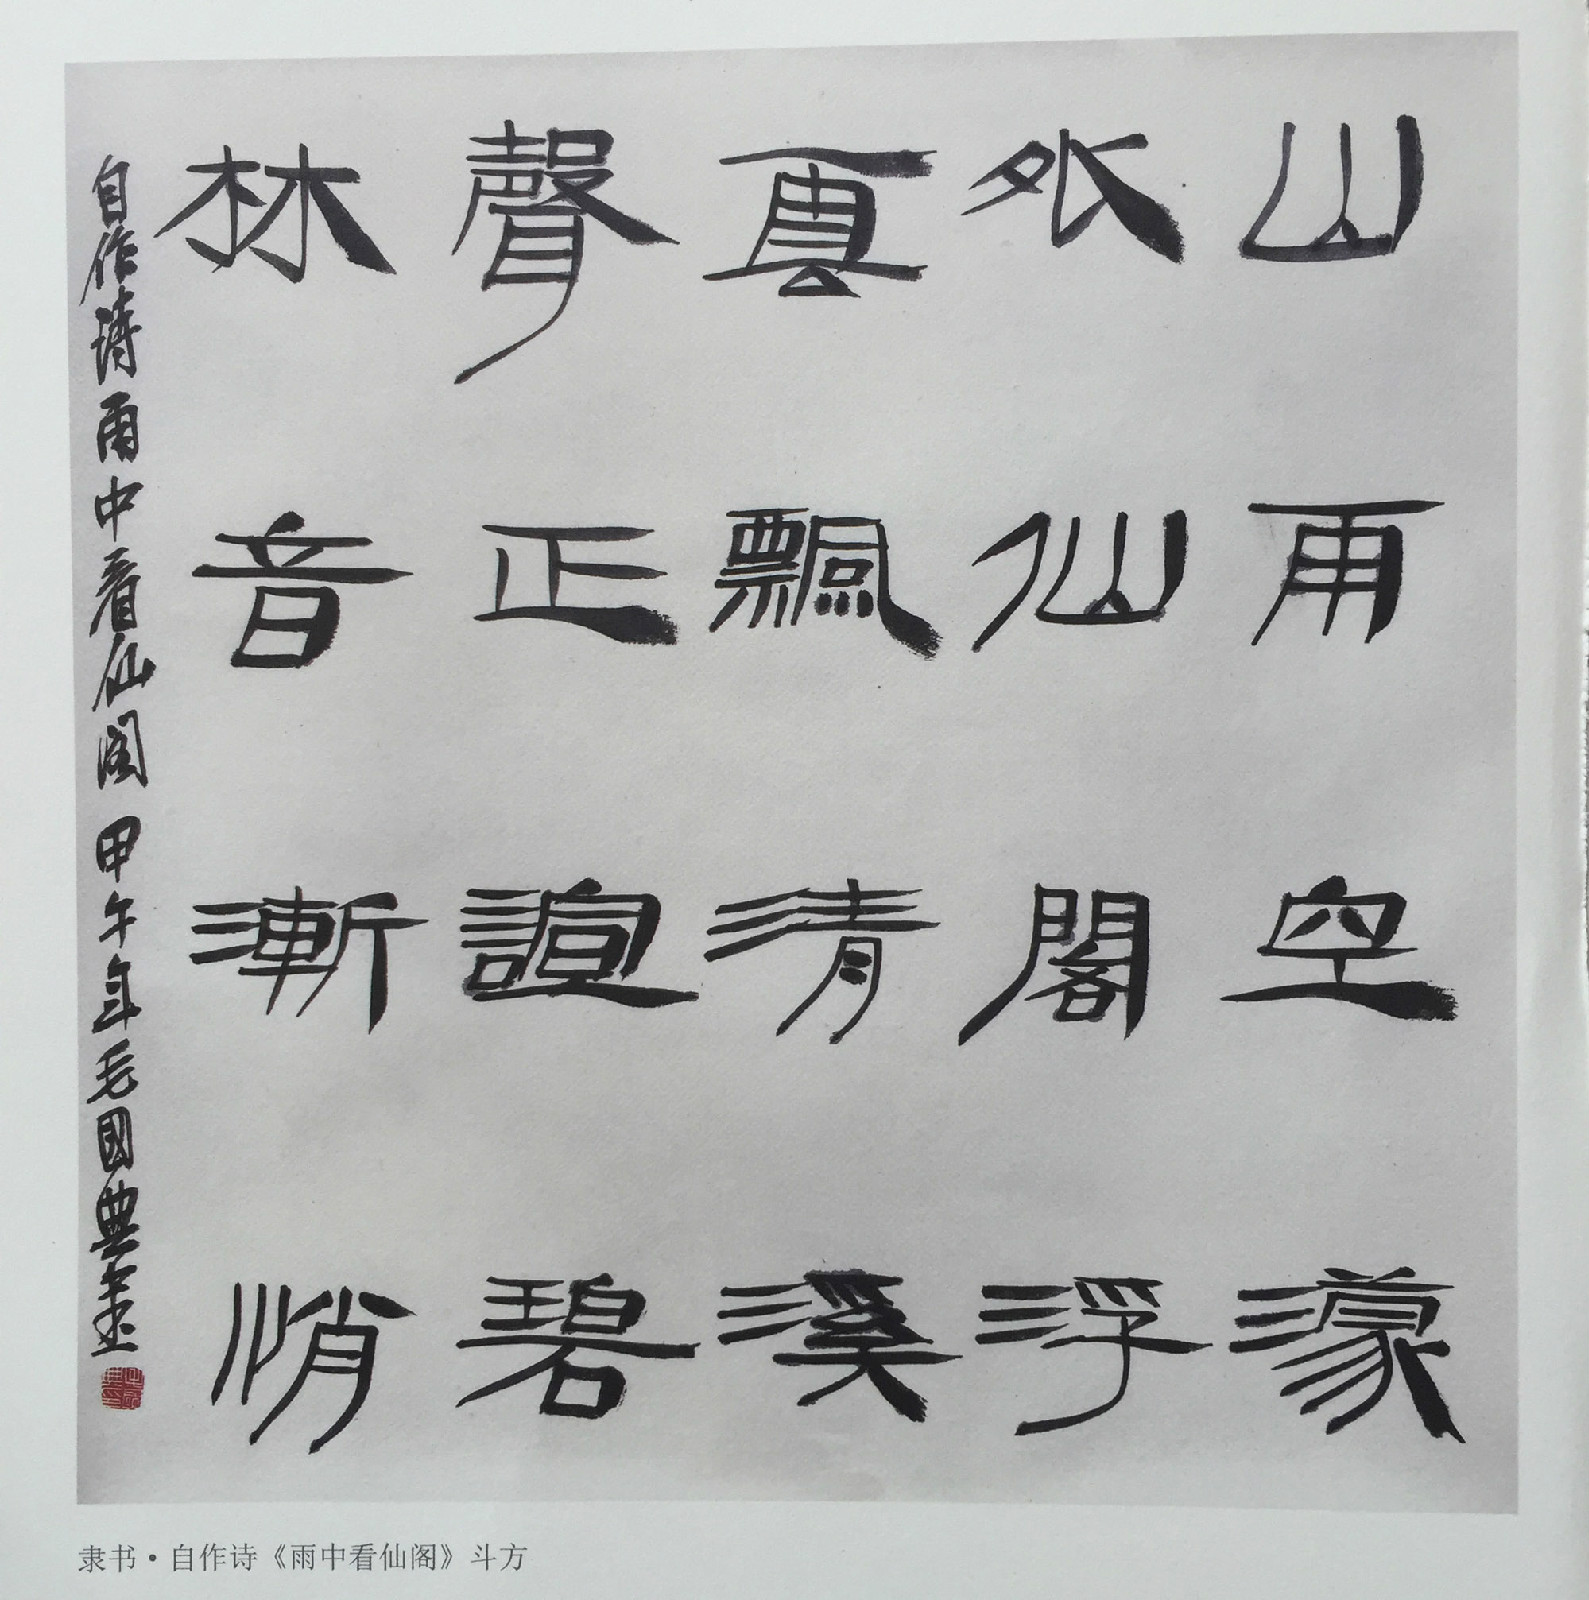 山雨空濛
外仙閣浮
真飄清溪
聲正諠碧
林音漸悄
自作詩雨中看仙閣 甲午年毛國典書
隶书·自作诗《雨中看仙阁》斗方